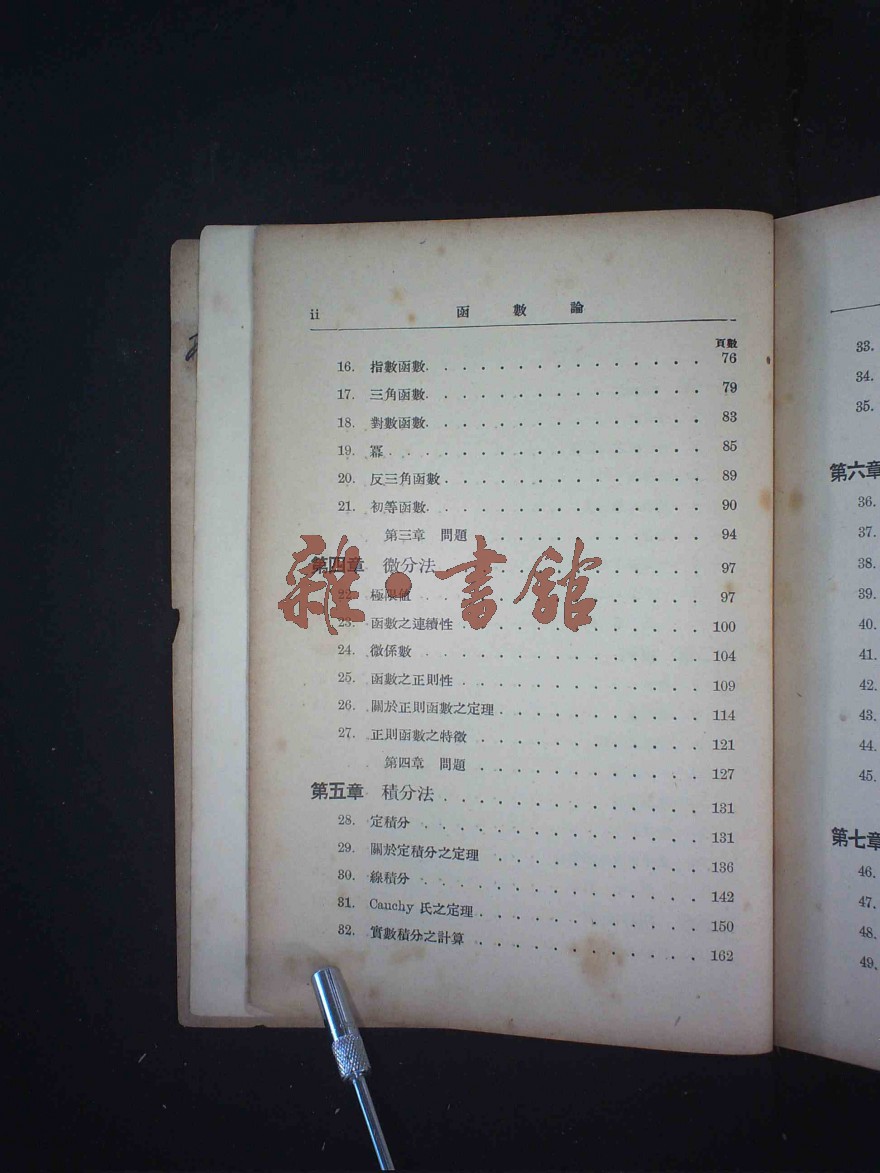 ii 函數論
頁數
16. 指數函數 76
17. 三角函數 79
18. 對數函數 83
19. 冪 85
20. 反三角函數 89
21. 初等函數 90
第三章 問題 94
第四章 微分法 97
22. 極限値 97
23. 函數之連續性 100
24. 微係數 104
25. 函數之正則性 109
26. 關於正則函數之定理 114
27. 正則函數之特徵 121
第四章 問題 127
第五章 積分法 131
28. 定積分 131
29. 關於定積分之定理 136
30. 線積分 142
31. Cauchy 氏之定理 150
32. 實數積分之計算 162
雜·書館
33.
34.
35.
第六章
36.
37.
38.
39.
40.
41.
42.
43.
44.
45.
第七章
46.
47.
48.
49.